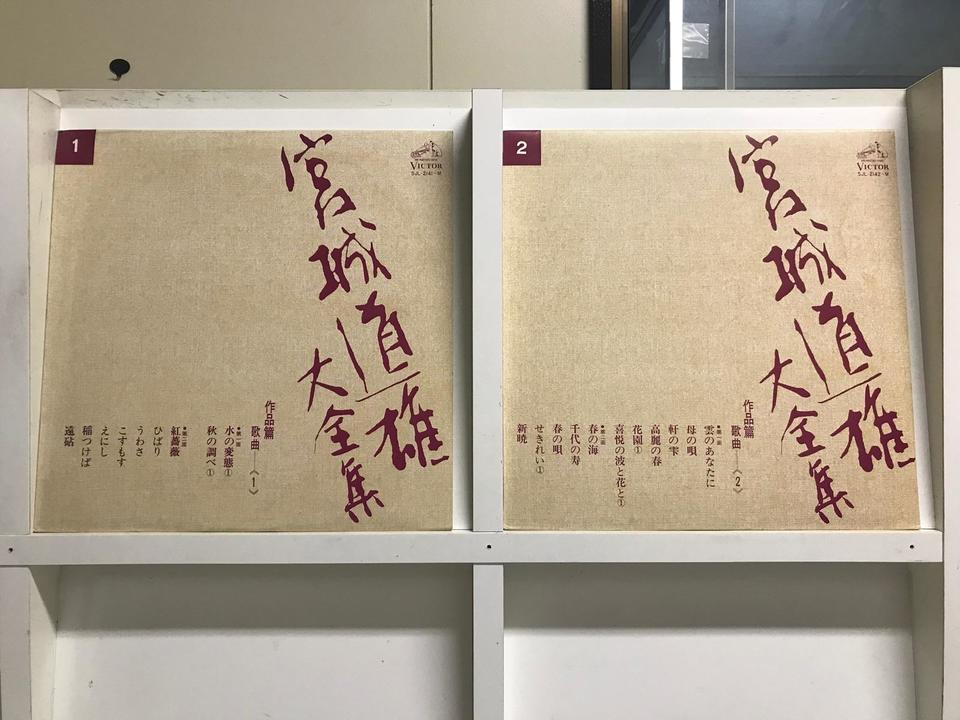 1
宮城道雄
大全集
VICTOR
SJL-2141-M
作品篇
歌曲―〈1〉
●第一面
水の変態①
秋の調べ①
●第二面
紅薔薇
ひばり
うわさ
こすもす
えにし
稲つけば
遠砧
2
宮城道雄
大全集
VICTOR
SJL-2142-M
作品篇
歌曲―〈2〉
●第一面
雲のあなたに
母の唄
軒の雫
高麗の春
花園①
喜悦の波と花と①
●第二面
春の海
千代の寿
春の唄
せきれい①
新暁